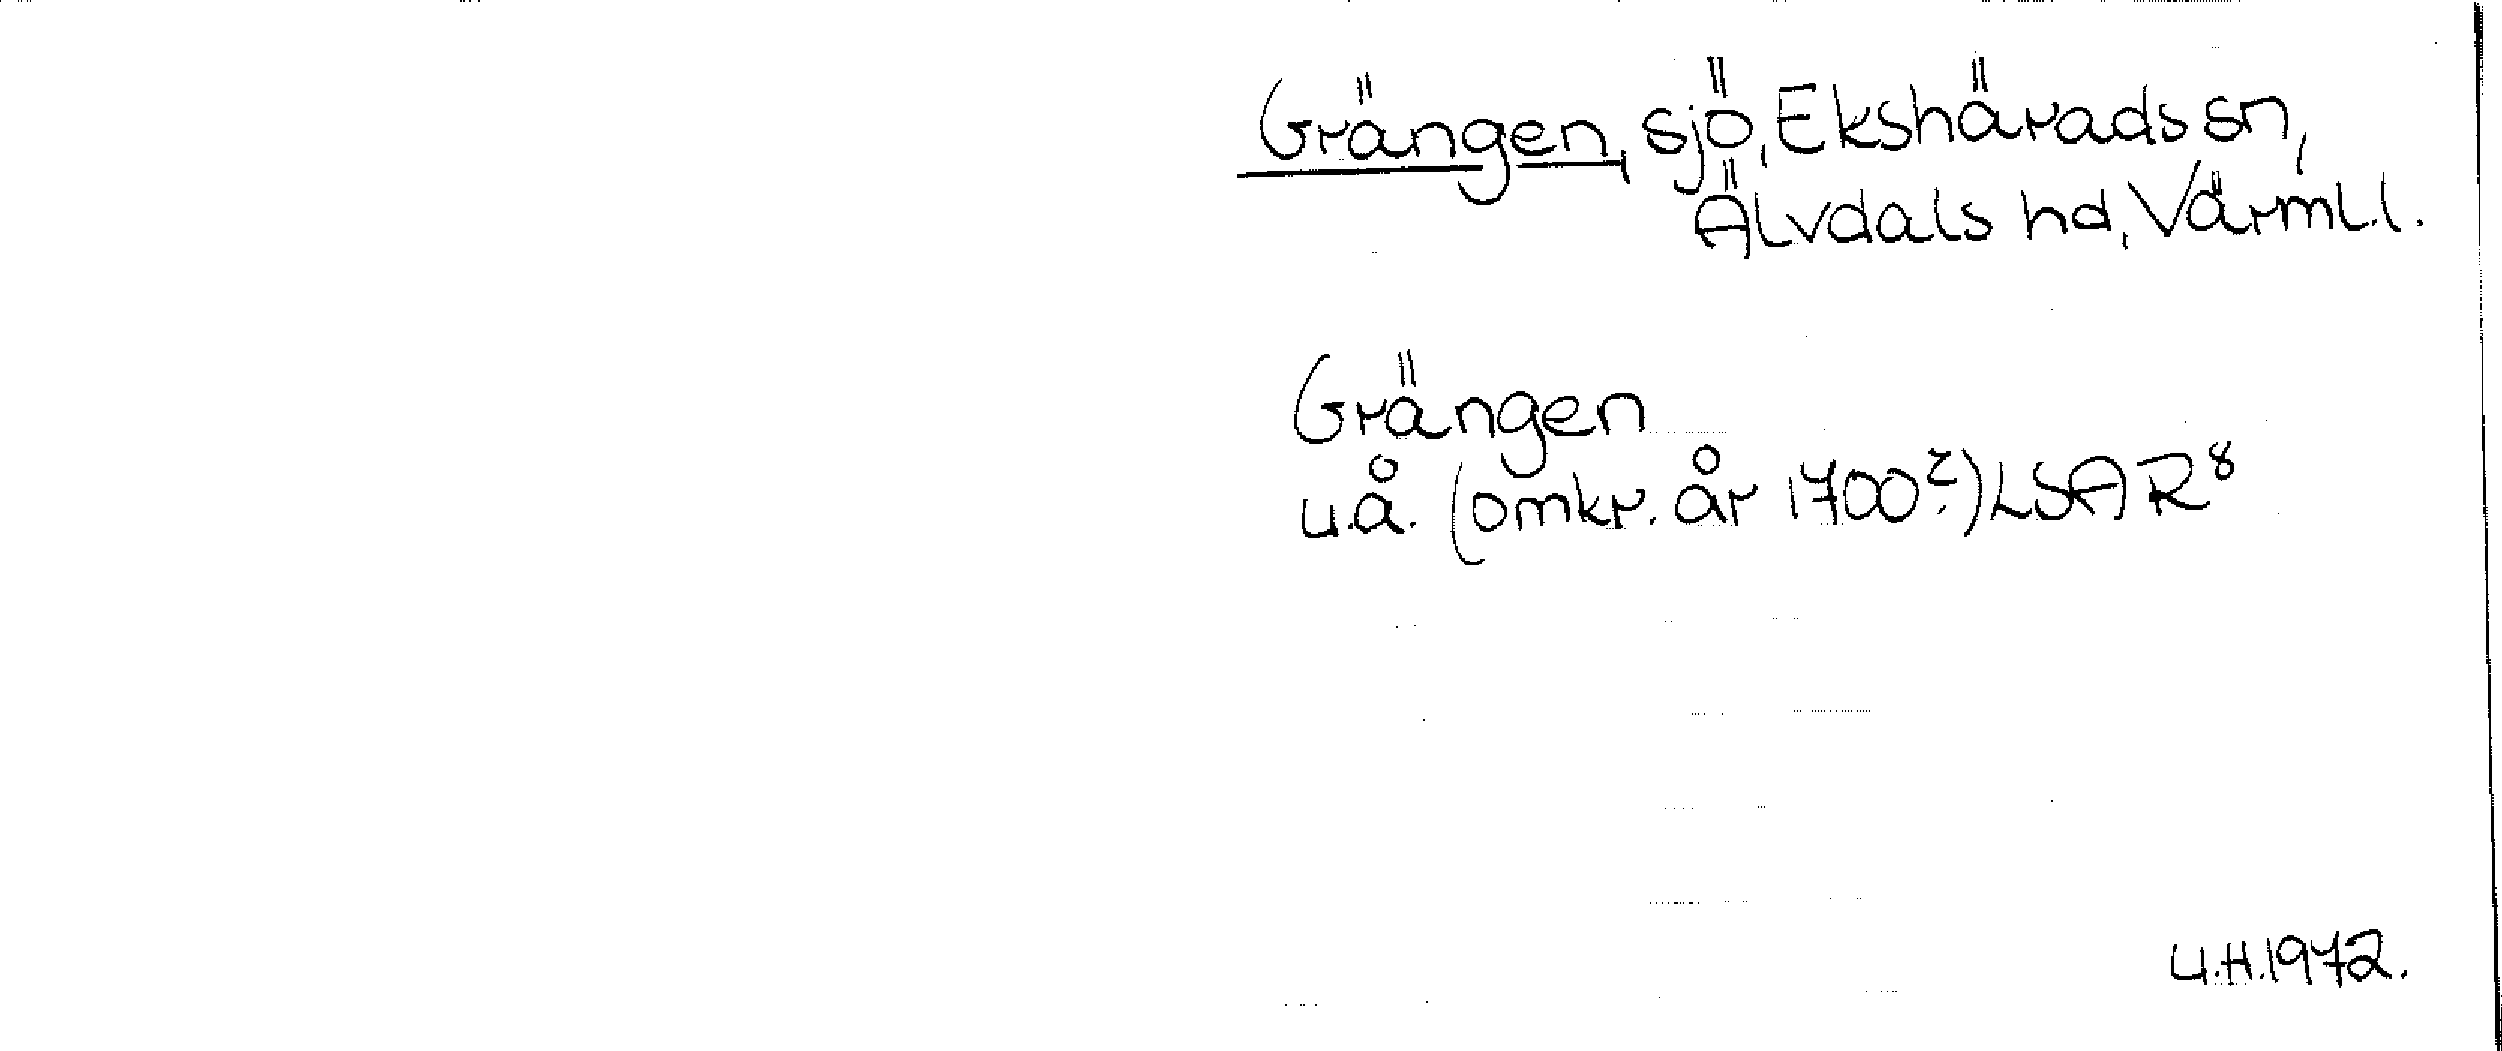 Grängen, sjö, Ekshärads sn,
Älvdals hd, Värml. l.
Grängen
u.å. (omkr. år 1700?) LSA R8
U.H. 1972.